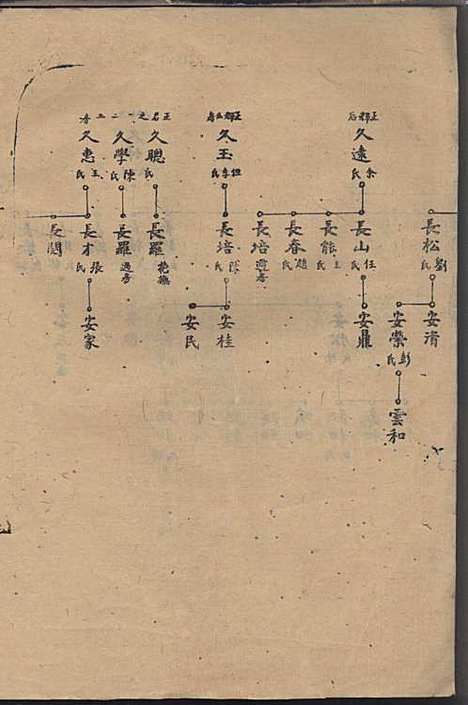 長松 劉氏
安清
安榮 彭氏
雲和
久遠 余氏
長山 任氏
長能 王氏
長春 趙氏
長培 過房
安鼎
久玉 氏
長培 陳氏
安桂
安民
久聰 氏
長羅 抱撫
久學 陳氏
長羅 過房
久惠 王氏
長才 張氏
安家
長閏